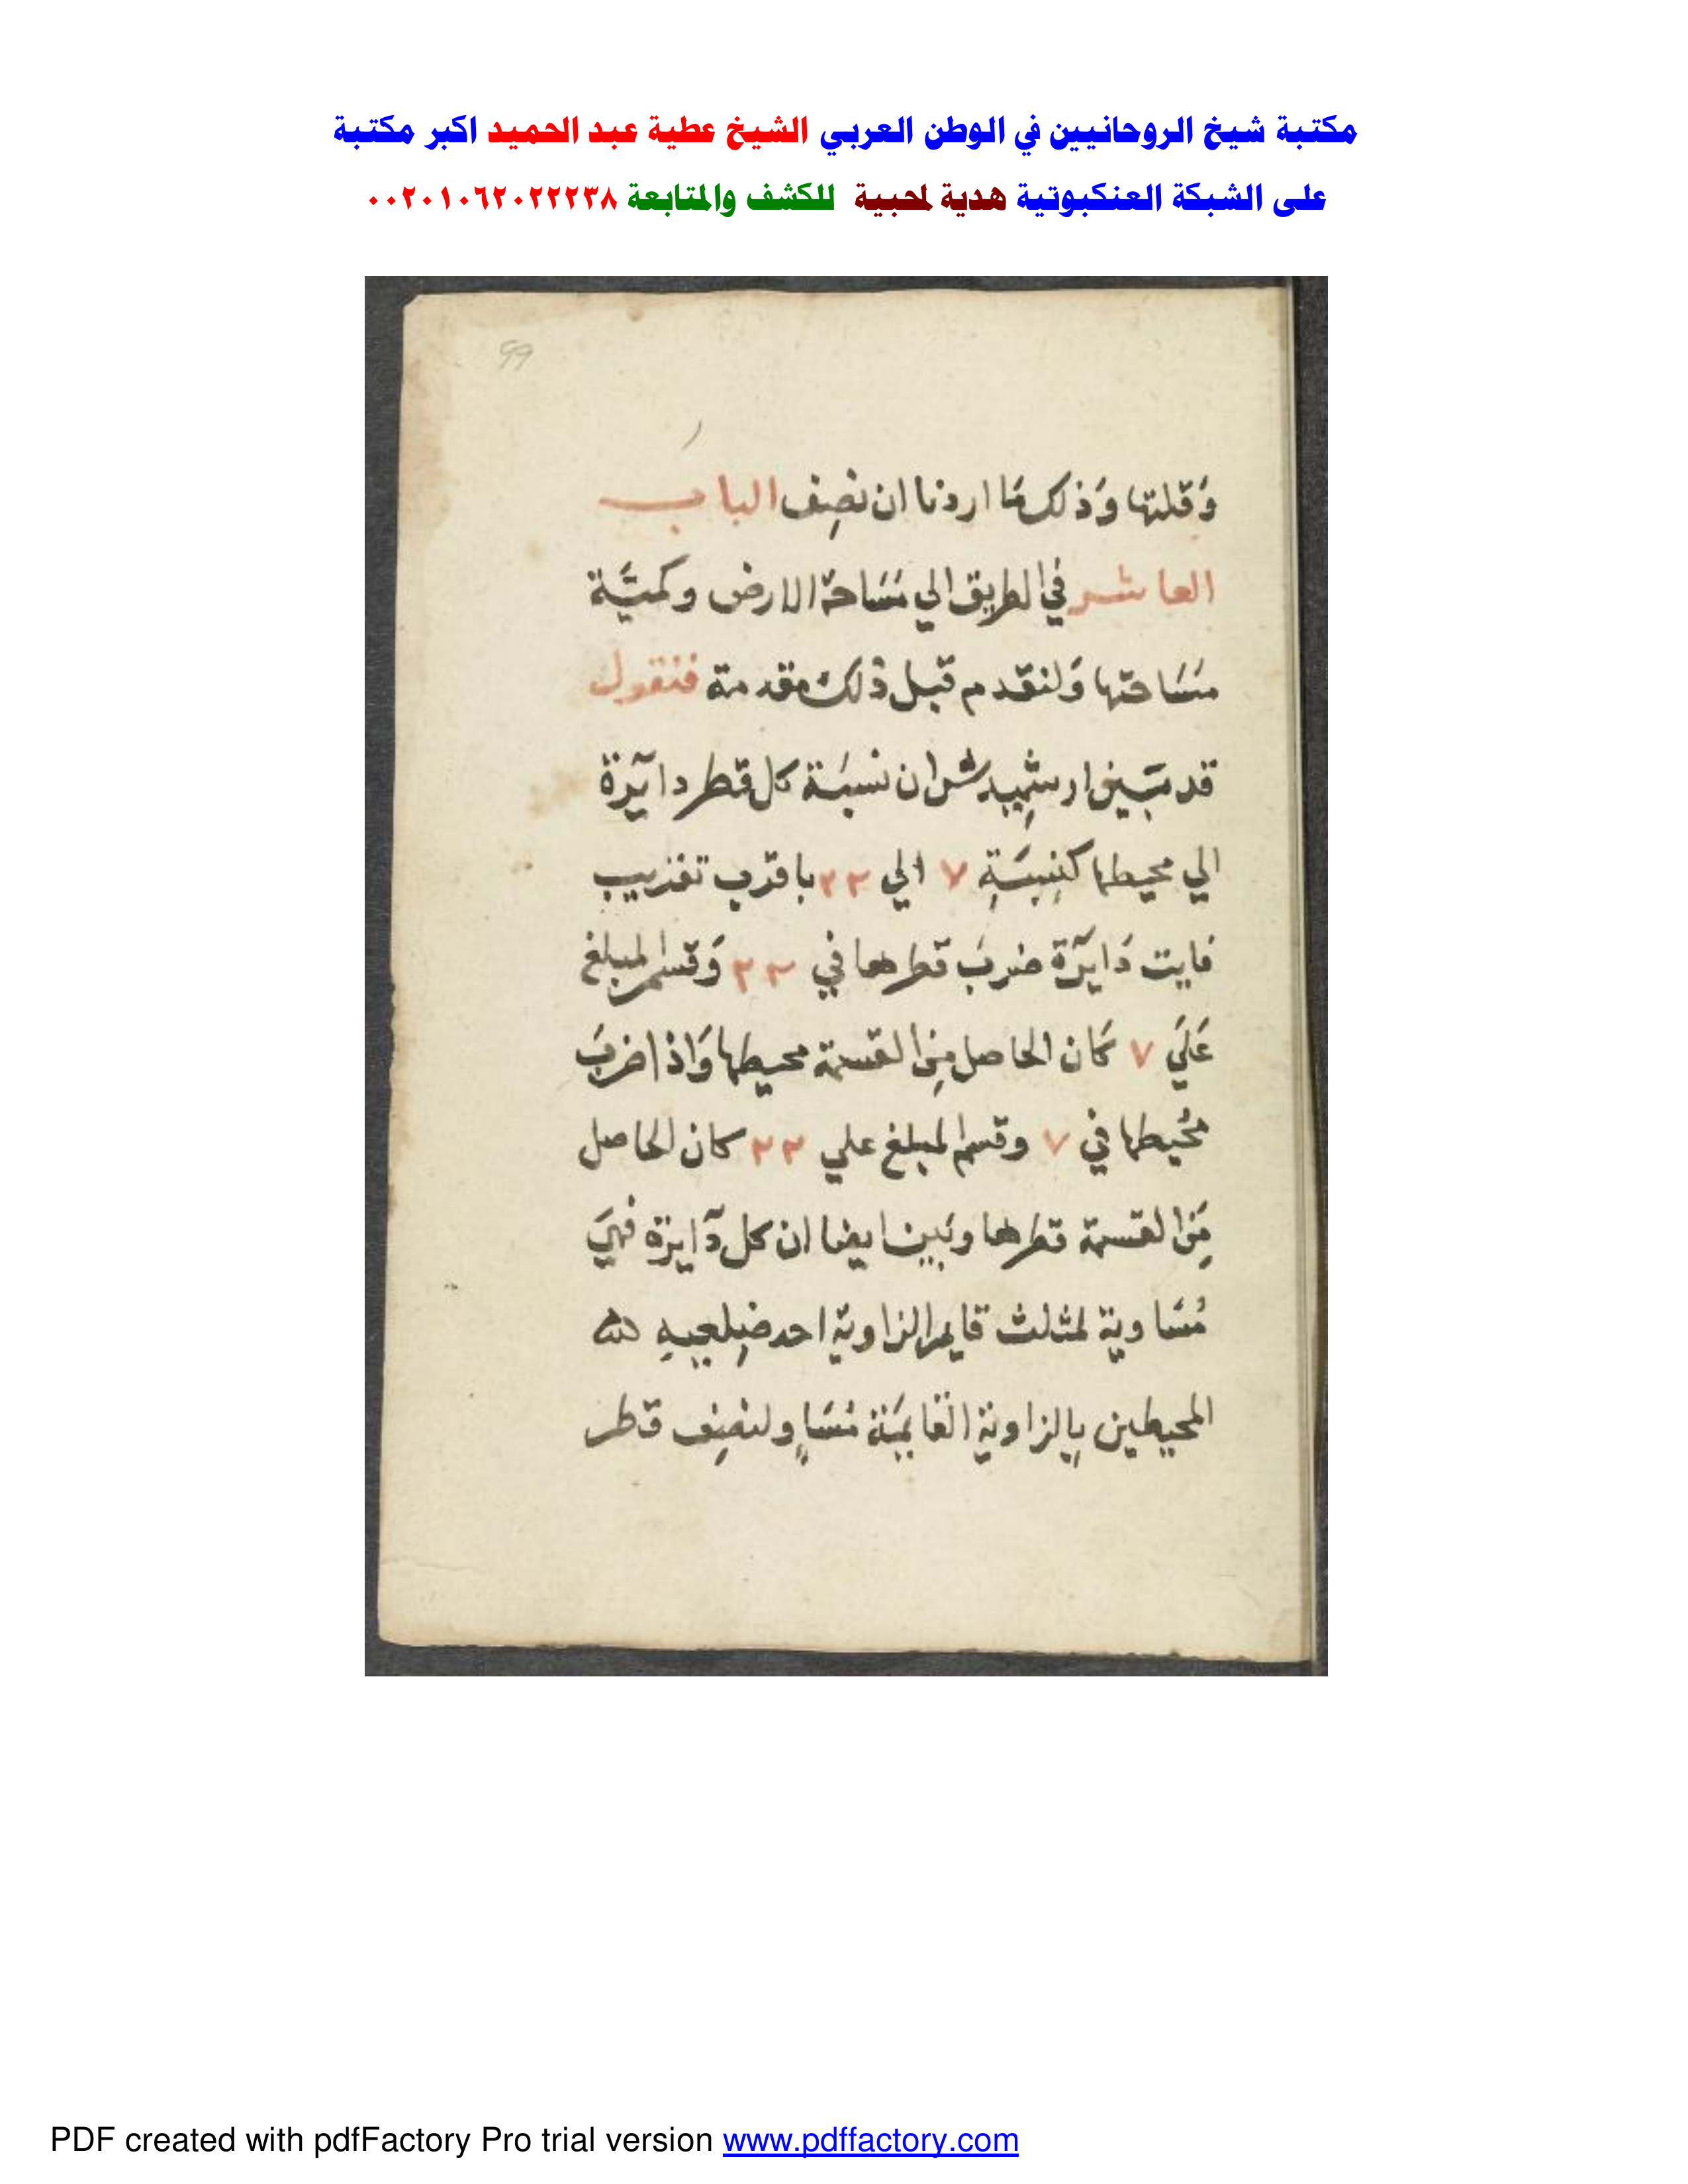 مكتبة شيخ الروحانيين في الوطن العربي الشيخ عطية عبد الحميد اكبر مكتبة
على الشبكة العنكبوتية هدية لمحبية للكشف والمتابعة ٠٠٢٠١٠٦٢٠٢٢٢٣٨
99
وَقلتها وَذلك مَا اردنا ان نصِف الباب
العاشر في الطريق الي مَسَاحة الارض وكميَّة
مسَاحتها وَلنقدم قبل ذلك مقدمة فنقول
قد بيَّن ارشميدش ان نسبَة كل قطر دايرة
الي محيطها كنِسبَةِ ٧ الي ٢٢ باقرب تقريب
فايت دَايرة ضربَ قطرها في ٢٢ وَقسم المبلغ
عَلَي ٧ كَان الحاصل مِن القسمة محيطها وَاذا ضربَ
مُحيطها في ٧ وقسم المبلغ علي ٢٢ كان الحاصل
مِن القسمة قطرها وبين ايضا ان كل دايرة فهيَ
مُسَاوية لمثلث قايم الزاوية احد ضِلعيهِ
المحيطين بِالزاوية القايمَة مُسَاوٍ لنصِف قطر
PDF created with pdfFactory Pro trial version www.pdffactory.com